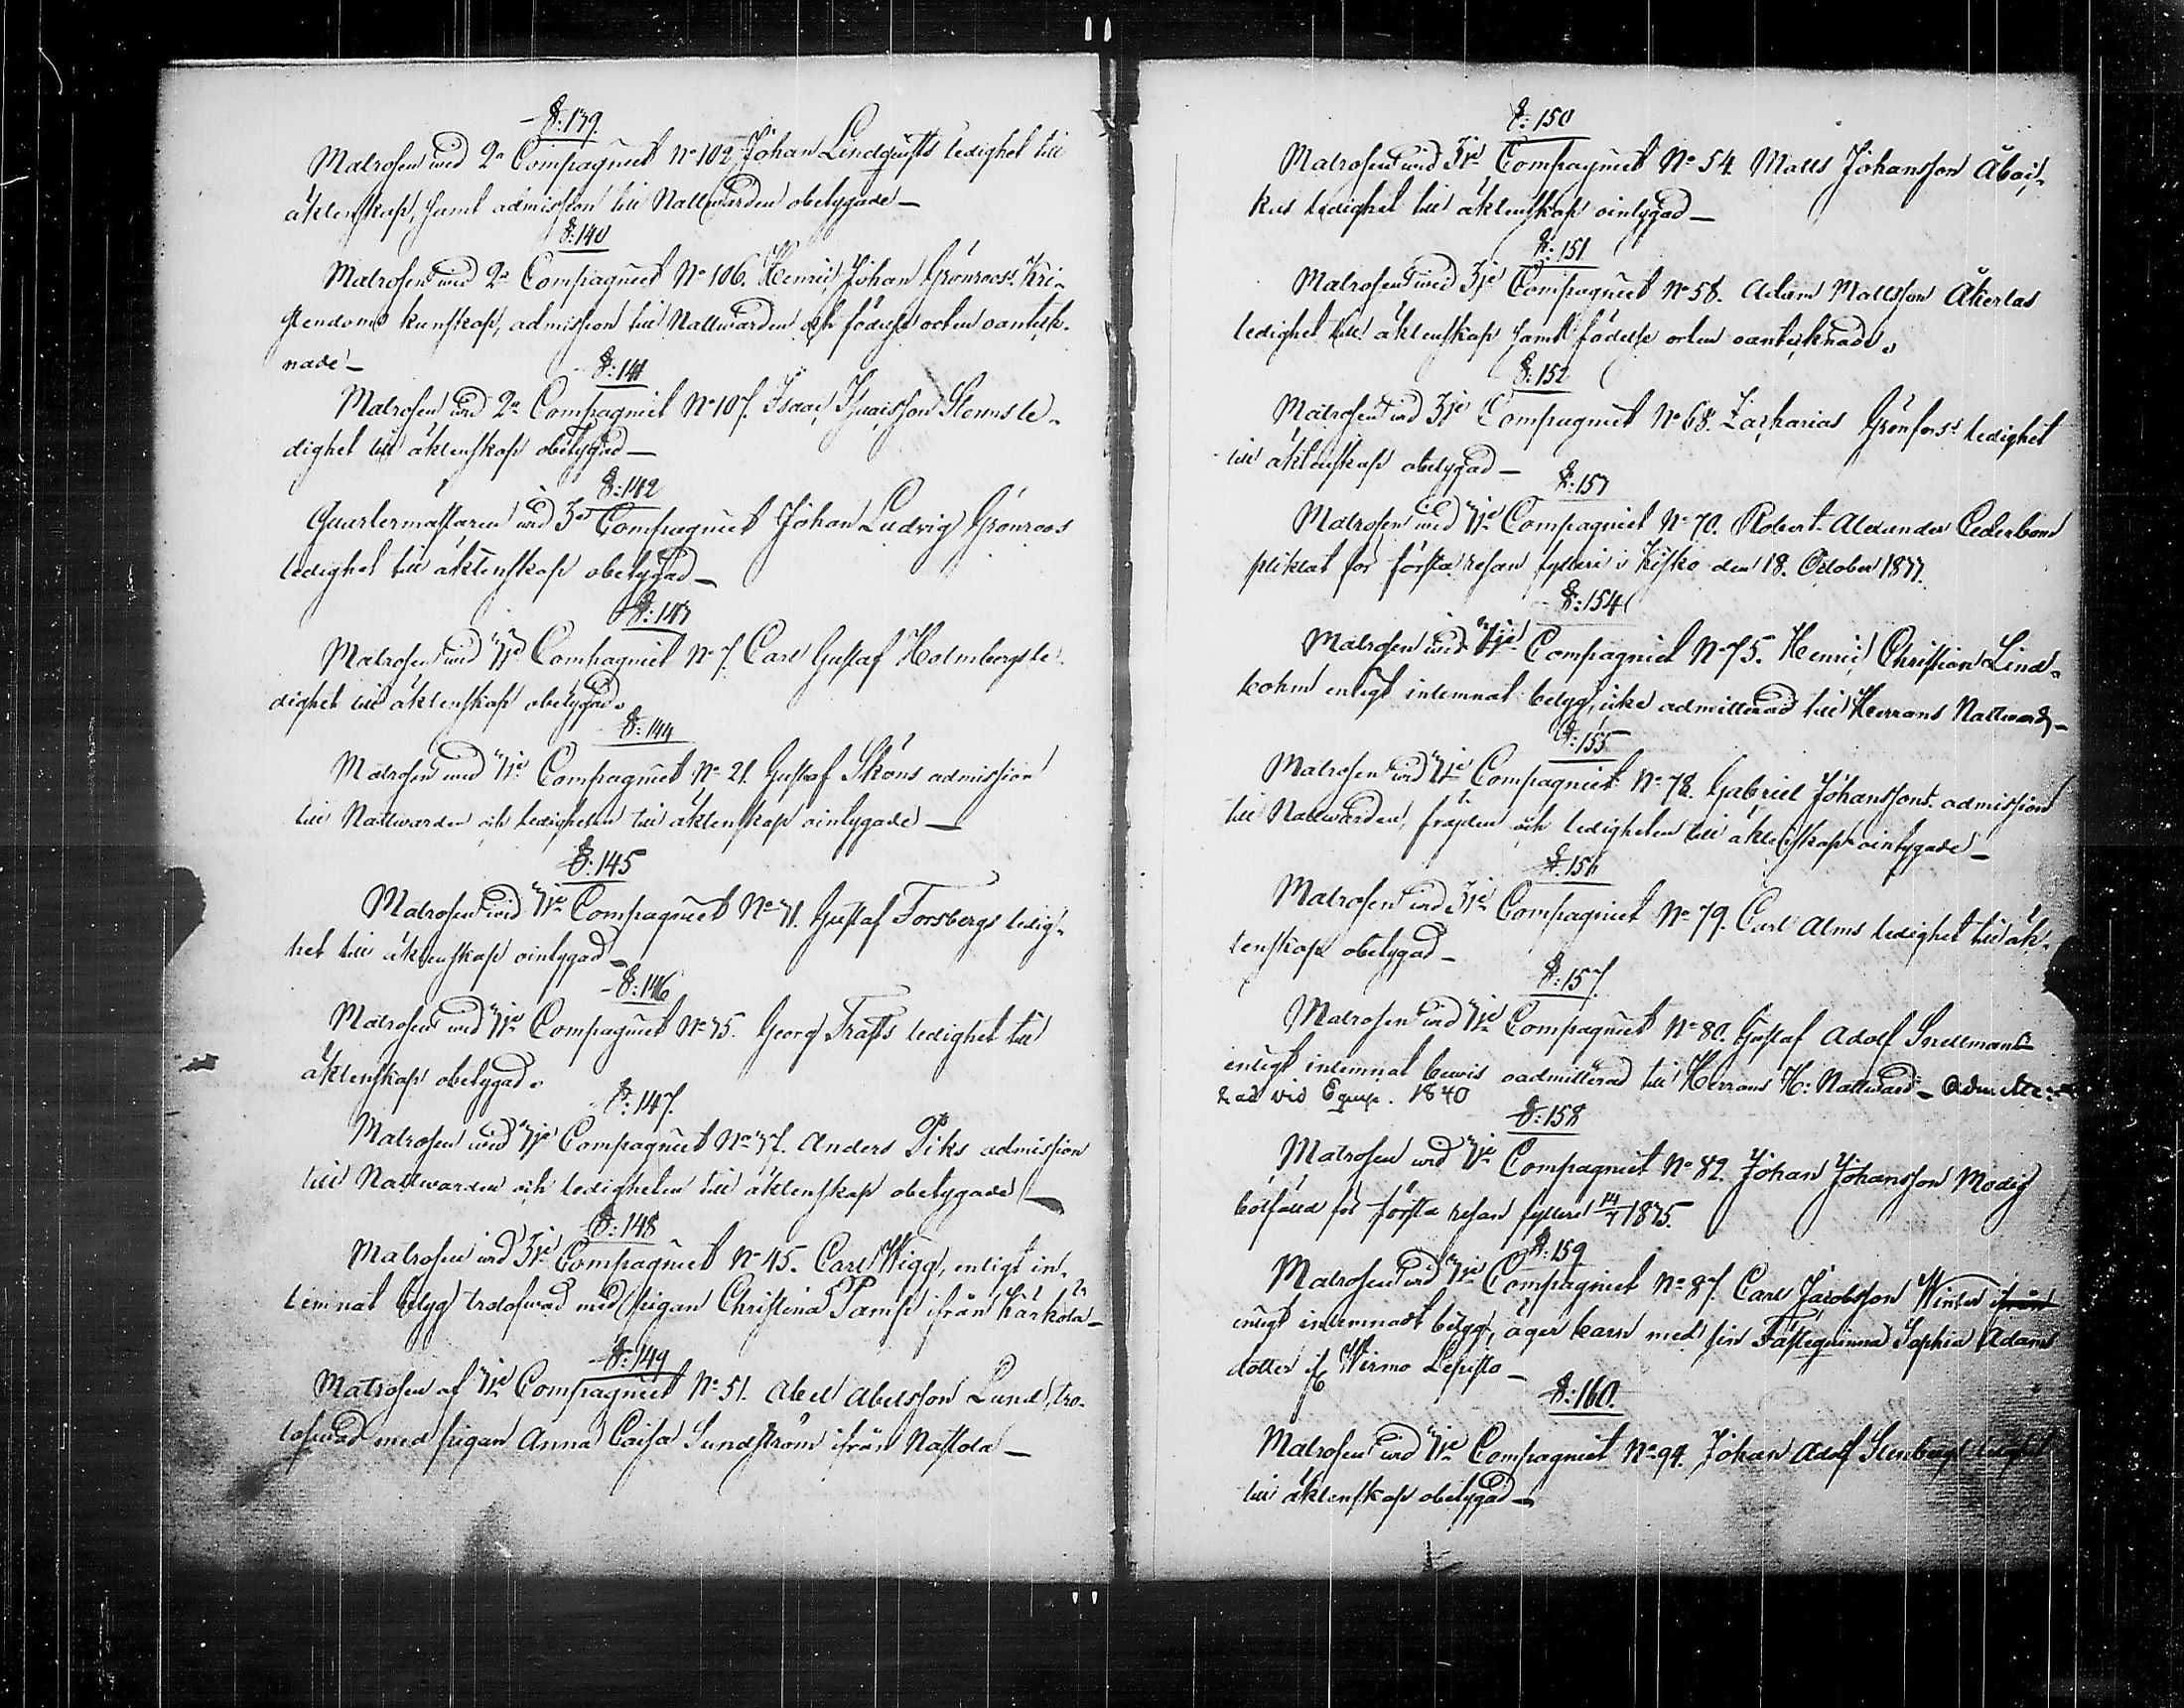 §: 139.
Matrosen wid 2a Compagniet No 102 Johan Lindqvists ledighet till
äktenskap, samt admission till Nattwarden obetygade —
§: 140
Matrosen wid 2a Compagniet No 106. Henric Johan Grönroos's Kri-
stendoms kunskap, admission till Nattwarden och födelse orten oanteck-
nade —
§: 141
Matrosen wid 2a Compagniet No 107. Isaac Isacsson Stenns le-
dighet till äktenskap obetygad —
§: 142
Quartermästaren wid 3e Compagniet Johan Ludvig Grönroos
ledighet till äktenskap obetygad —
§: 143
Matrosen wid 3je Compagniet No 7. Carl Gustaf Holmbergs le-
dighet till äktenskap obetygad.
§: 144
Matrosen wid 3je Compagniet No 21. Gustaf Sköns admission
till Nattwarden och ledigheten till äktenskap ointygade —
§: 145
Matrosen wid 3je Compagniet No 31. Gustaf Forsbergs ledig-
het till äktenskap ointygad —
§: 146
Matrosen wid 3je Compagniet No 35. Georg Trafts ledighet till
äktenskap obetygad.
§: 147.
Matrosen wid 3je Compagniet No 37. Anders Piks admission
till Nattwarden och ledigheten till äktenskap obetygade —
§: 148
Matrosen wid 3je Compagniet No 45. Carl Wigg, enligt in-
lemnat betyg trolofwad med pigan Christina Pamp ifrån Kärkola —
§: 149
Matrosen af 3je Compagniet No 51. Abel Abelsson Lund, tro-
lofwad med pigan Anna Caisa Sundström ifrån Nastola —
§: 150
Matrosen wid 3je Compagniet No 54. Matts Johansson Åboi-
kus ledighet till äktenskap ointygad —
§: 151
Matrosen wid 3je Compagniet No 58. Adam Mattsson Åkerlas
ledighet till äktenskap samt födelse orten oantecknade.
§: 152
Matrosen wid 3je Compagniet No 68. Zacharias Grönfors's ledighet
till äktenskap obetygad —
§: 153
Matrosen wid 3je Compagniet No 70. Robert Alexander Cederbom
pliktat för första resan fylleri i Kisko den 18. October 1833.
§: 154
Matrosen wid 3je Compagniet No 75. Henric Christian Lind-
bohm enligt inlemnat betyg, icke admitterad till Herrans Nattward —
§: 155
Matrosen wid 3je Compagniet No 78. Gabriel Johanssons admission
till Nattwarden, frejden och ledigheten till äktenskap ointygade —
§: 156
Matrosen wid 3je Compagniet No 79. Carl Alms ledighet till äk-
tenskap obetygad —
§: 157.
Matrosen wid 3je Compagniet No 80. Gustaf Adolf Snellman
enligt inlemnat bewis oadmitterad till Herrans H: Nattward — Admitte:
rad vid Equip. 1840
§: 158
Matrosen wid 3je Compagniet No 82. Johan Johansson Modig
botfäld för första resan fylleri 14/1 1835.
§: 159
Matrosen wid 3je Compagniet No 87. Carl Jacobsson Winter ifrån
enligt inlemnadt betyg, äger barn med sin Fästeqvinna Sophia Adams
dotter if Wirmo Lepisto —
§: 160.
Matrosen wid 3je Compagniet No 94. Johan Adolf Stenbergs ledighet
till äktenskap obetygad —